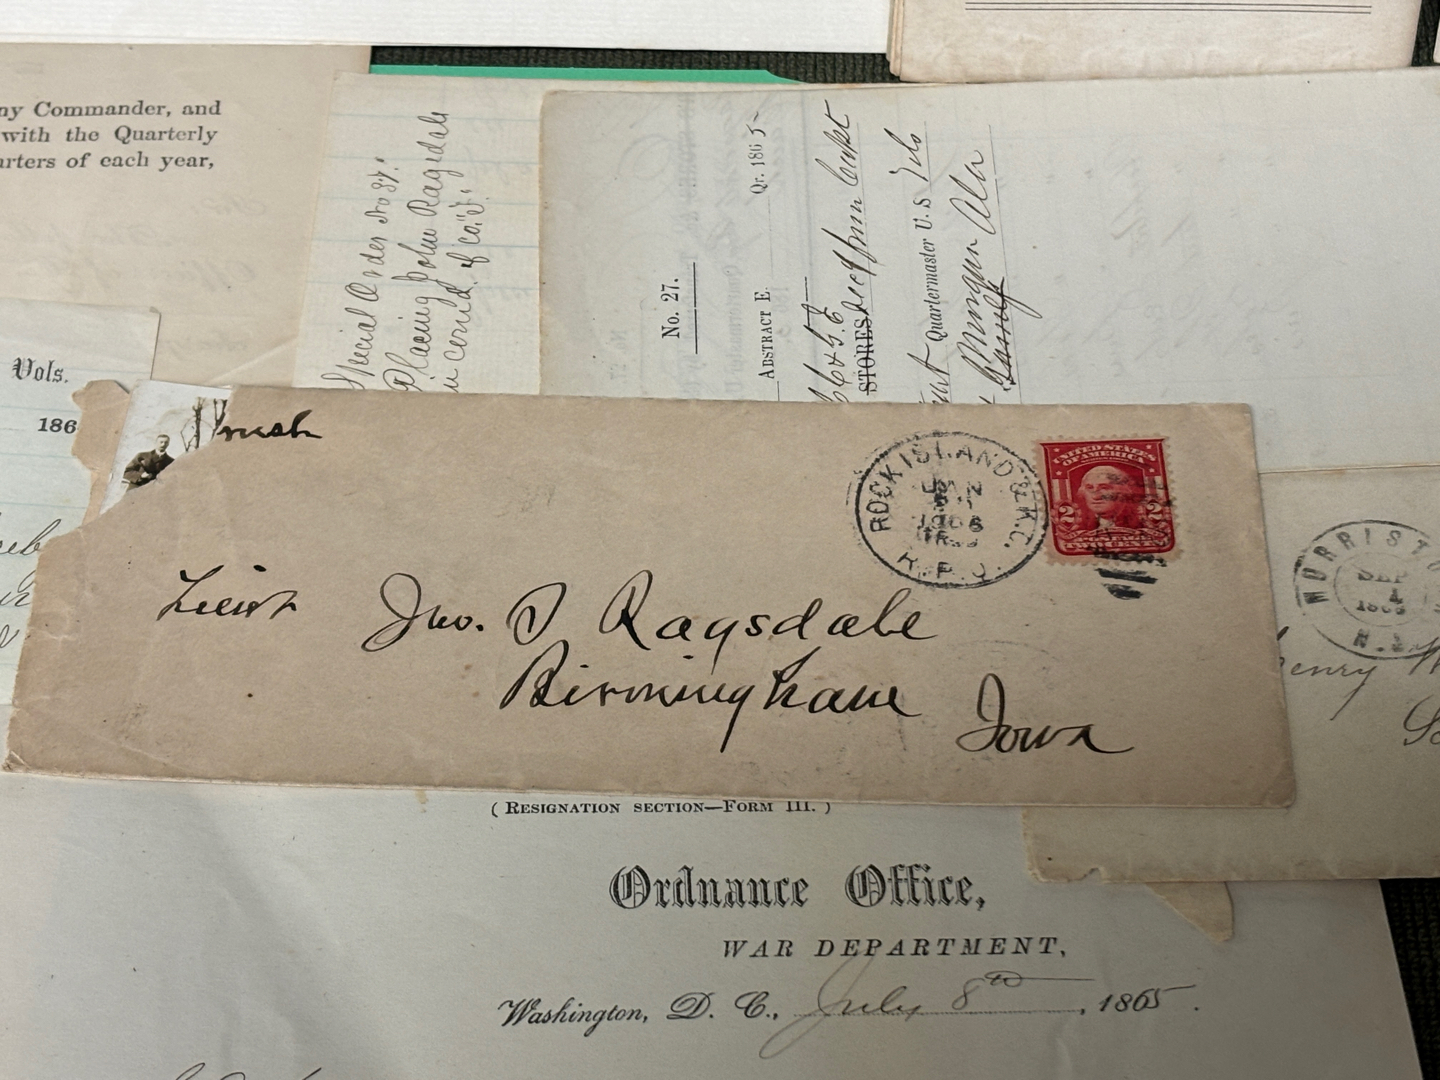 ny Commander, and
with the Quarterly
arters of each year,
Special Order No 37.
Placing John Ragsdale
in comd. of Co. "I."
No. 27.
ABSTRACT E. Qr. 1865
STORES
Quartermaster U. S. Vols
Ala
Vols.
186
Lieut Jno. D Ragsdale
Birmingham
Iowa
ROCK ISLAND & K.C.
JAN
1906
R.P.O.
UNITED STATES
OF AMERICA
2 2
TWO CENTS
MORRISTO
SEP
4
N.J.
enry W
(RESIGNATION SECTION—FORM III.)
Ordnance Office,
WAR DEPARTMENT,
Washington, D. C., July 8th, 1865.